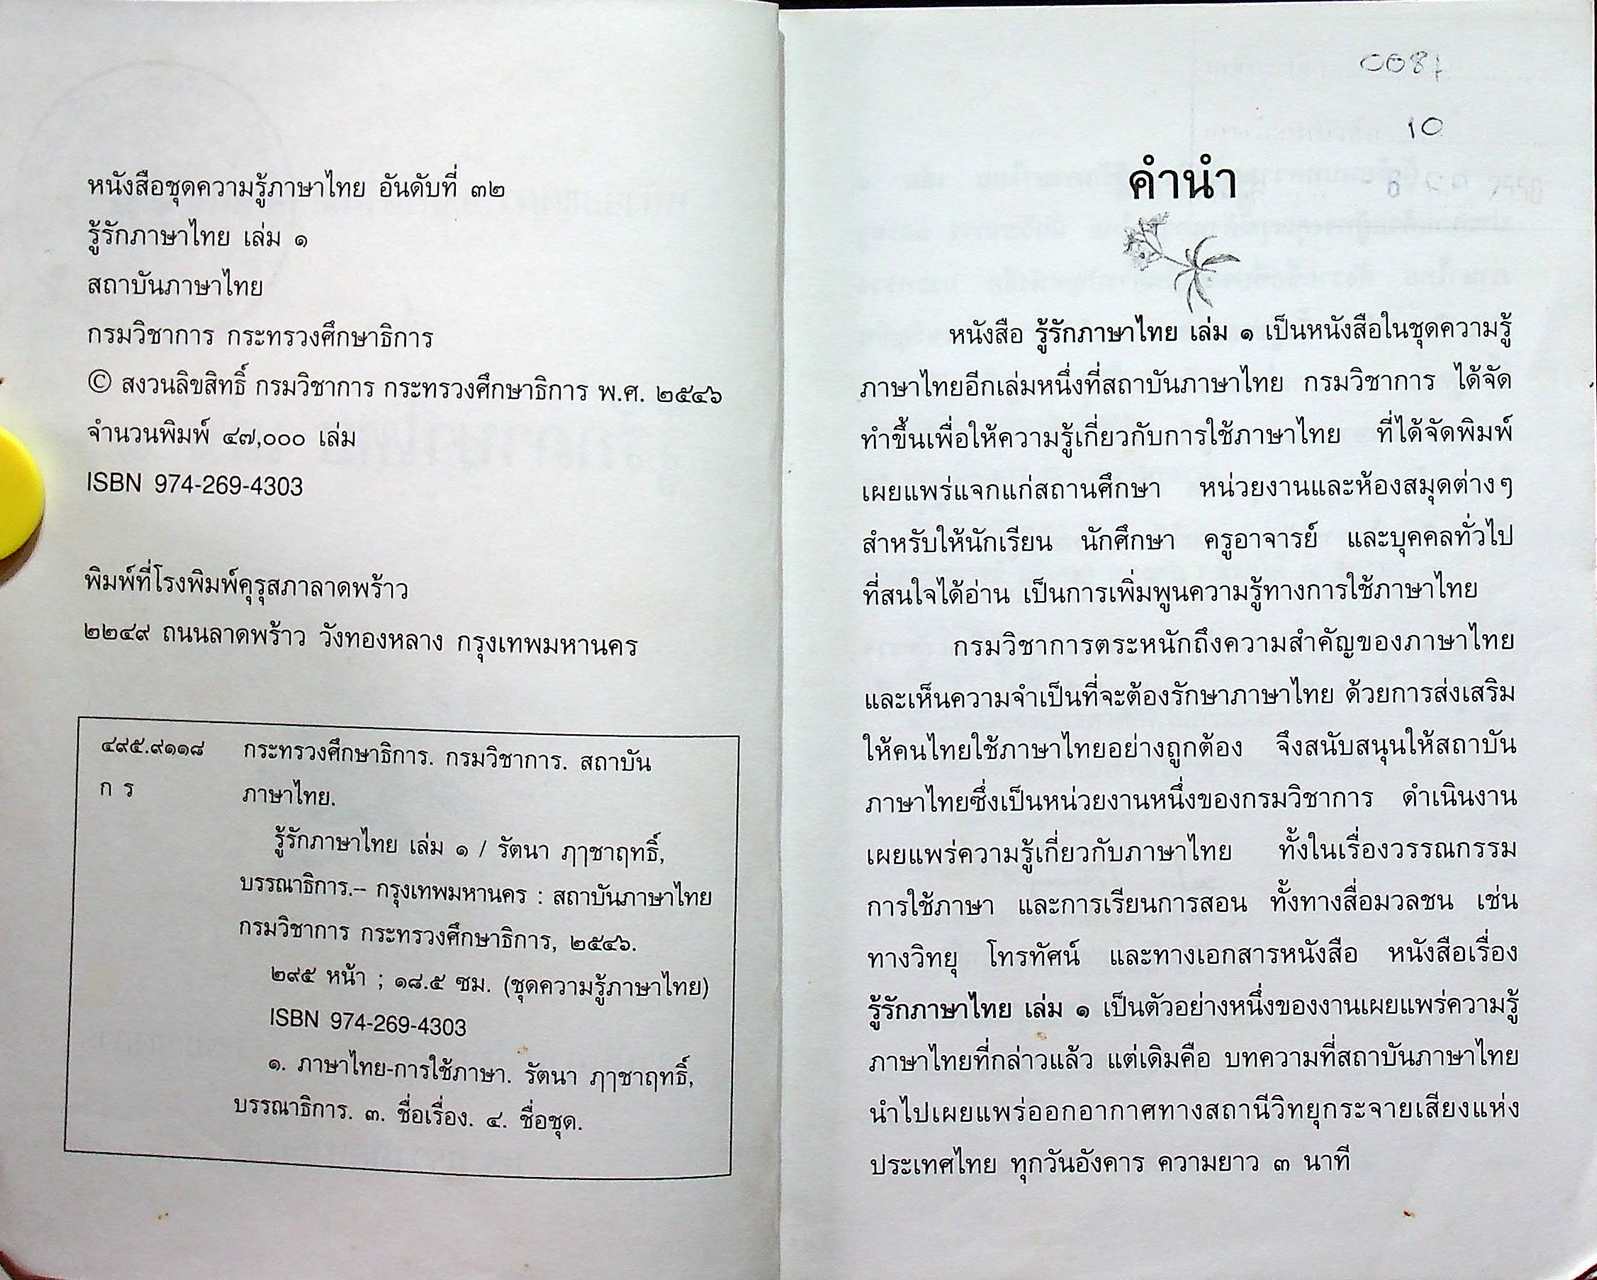 หนังสือชุดความรู้ภาษาไทย อันดับที่ ๓๒
รู้รักภาษาไทย เล่ม ๑
สถาบันภาษาไทย
กรมวิชาการ กระทรวงศึกษาธิการ
© สงวนลิขสิทธิ์ กรมวิชาการ กระทรวงศึกษาธิการ พ.ศ. ๒๕๔๖
จำนวนพิมพ์ ๔๗,๐๐๐ เล่ม
ISBN 974-269-4303
พิมพ์ที่โรงพิมพ์คุรุสภาลาดพร้าว
๒๒๔๙ ถนนลาดพร้าว วังทองหลาง กรุงเทพมหานคร
๔๙๕.๙๑๑๘ กระทรวงศึกษาธิการ. กรมวิชาการ. สถาบัน
ก ร ภาษาไทย.
รู้รักภาษาไทย เล่ม ๑ / รัตนา ฦๅชาฤทธิ์,
บรรณาธิการ.– กรุงเทพมหานคร : สถาบันภาษาไทย
กรมวิชาการ กระทรวงศึกษาธิการ, ๒๕๔๖.
๒๙๕ หน้า ; ๑๘.๕ ซม. (ชุดความรู้ภาษาไทย)
ISBN 974-269-4303
๑. ภาษาไทย-การใช้ภาษา. รัตนา ฦๅชาฤทธิ์,
บรรณาธิการ. ๓. ชื่อเรื่อง. ๔. ชื่อชุด.
10
คำนำ
หนังสือ รู้รักภาษาไทย เล่ม ๑ เป็นหนังสือในชุดความรู้
ภาษาไทยอีกเล่มหนึ่งที่สถาบันภาษาไทย กรมวิชาการ ได้จัด
ทำขึ้นเพื่อให้ความรู้เกี่ยวกับการใช้ภาษาไทย ที่ได้จัดพิมพ์
เผยแพร่แจกแก่สถานศึกษา หน่วยงานและห้องสมุดต่างๆ
สำหรับให้นักเรียน นักศึกษา ครูอาจารย์ และบุคคลทั่วไป
ที่สนใจได้อ่าน เป็นการเพิ่มพูนความรู้ทางการใช้ภาษาไทย
กรมวิชาการตระหนักถึงความสำคัญของภาษาไทย
และเห็นความจำเป็นที่จะต้องรักษาภาษาไทย ด้วยการส่งเสริม
ให้คนไทยใช้ภาษาไทยอย่างถูกต้อง จึงสนับสนุนให้สถาบัน
ภาษาไทยซึ่งเป็นหน่วยงานหนึ่งของกรมวิชาการ ดำเนินงาน
เผยแพร่ความรู้เกี่ยวกับภาษาไทย ทั้งในเรื่องวรรณกรรม
การใช้ภาษา และการเรียนการสอน ทั้งทางสื่อมวลชน เช่น
ทางวิทยุ โทรทัศน์ และทางเอกสารหนังสือ หนังสือเรื่อง
รู้รักภาษาไทย เล่ม ๑ เป็นตัวอย่างหนึ่งของงานเผยแพร่ความรู้
ภาษาไทยที่กล่าวแล้ว แต่เดิมคือ บทความที่สถาบันภาษาไทย
นำไปเผยแพร่ออกอากาศทางสถานีวิทยุกระจายเสียงแห่ง
ประเทศไทย ทุกวันอังคาร ความยาว ๓ นาที